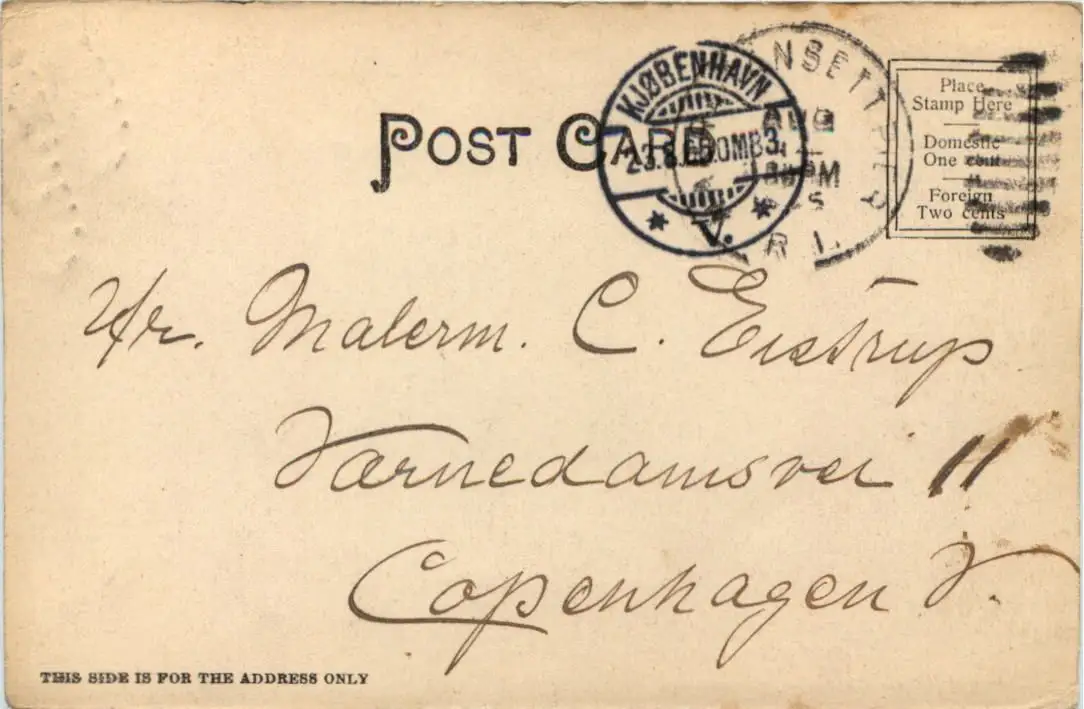 POST CARD
KJØBENHAVN
OMB3
V.
NSETT
AUG
PM
R.I.
Place
Stamp Here
Domestic
One cent
Foreign
Two cents
Hr. Malerm. C. Eistrup
Værnedamsvei 11
Copenhagen V.
THIS SIDE IS FOR THE ADDRESS ONLY